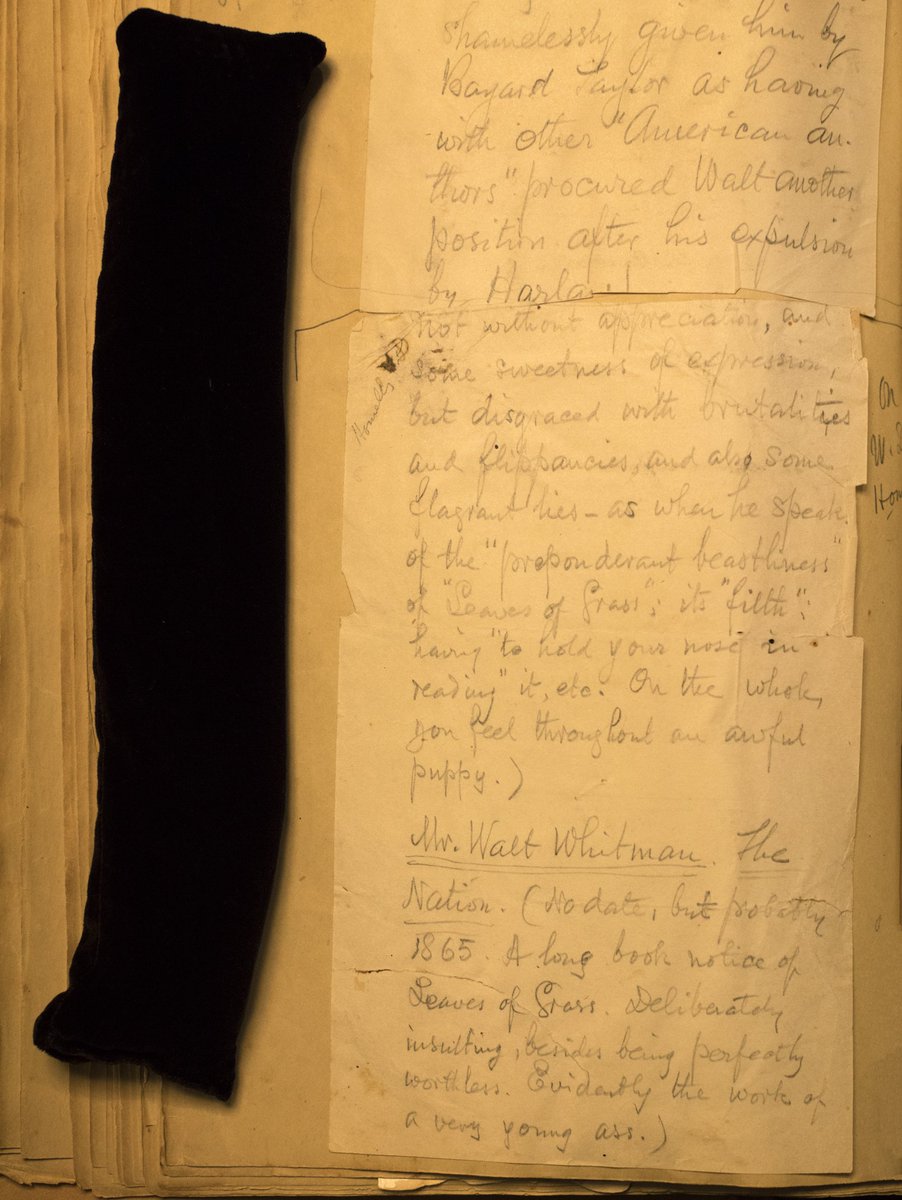 shamelessly given him by
Bayard Taylor as having
with other "American au-
thors" procured Walt another
position after his expulsion
by Harlan!
not without appreciation, and
some sweetness of expression,
but disgraced with brutalities
and flippancies, and also some
flagrant lies – as when he speak
of the "preponderant beastliness"
of "Leaves of Grass"; its "filth";
having "to hold your nose in
reading" it, etc. On the whole,
you feel throughout an awful
puppy.)
Mr. Walt Whitman. The
Nation. (No date, but probably
1865. A long book notice of
Leaves of Grass. Deliberately
insulting, besides being perfectly
worthless. Evidently the work of
a very young ass.)
Howells
On
W.